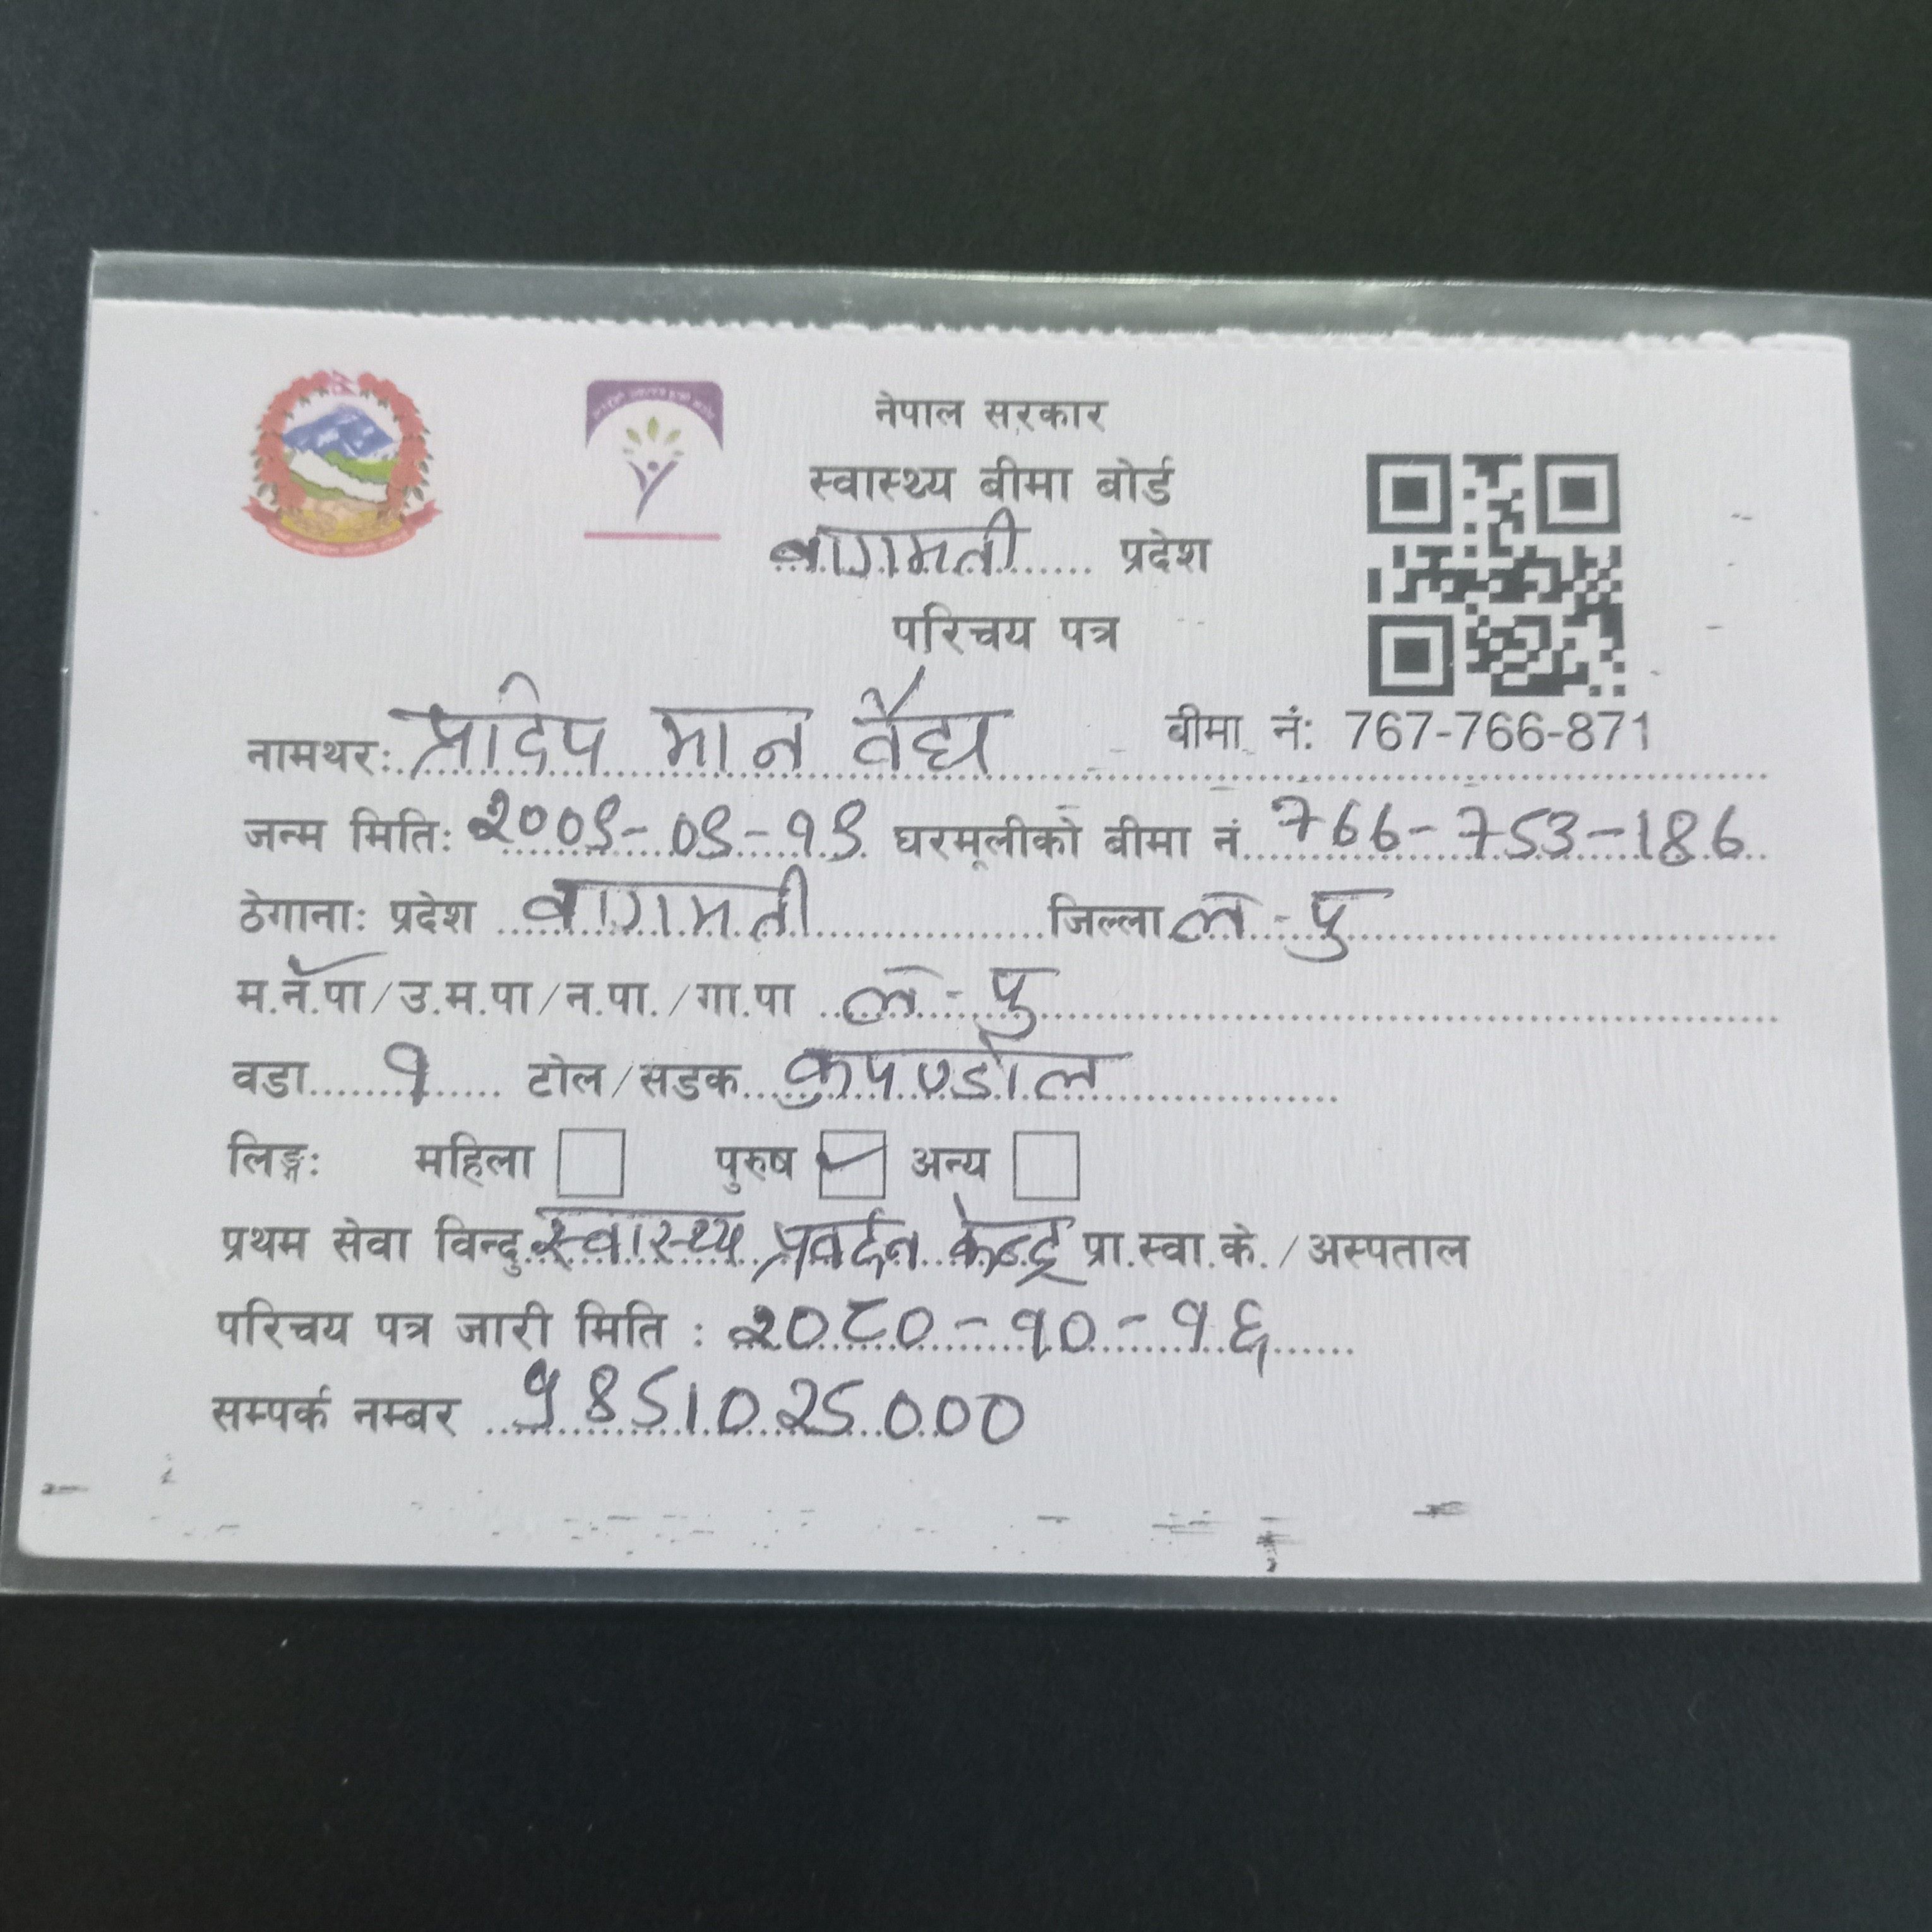 नेपाल सरकार
स्वास्थ्य बीमा बोर्ड
बागमती प्रदेश
परिचय पत्र
नामथर: प्रदिप मान वैद्य बीमा नं: 767-766-871
जन्म मिति: २००९-०९-१९ घरमूलीको बीमा नं 766-753-186
ठेगाना: प्रदेश बागमती जिल्ला ल-पु
म.न.पा/उ.म.पा/न.पा./गा.पा ल-पु
वडा १ टोल/सडक कुपण्डोल
लिङ्ग: महिला पुरुष अन्य
प्रथम सेवा विन्दु स्वास्थ्य प्रवर्दन केन्द्र प्रा.स्वा.के./अस्पताल
परिचय पत्र जारी मिति : २०८०-१०-१६
सम्पर्क नम्बर 9851025000